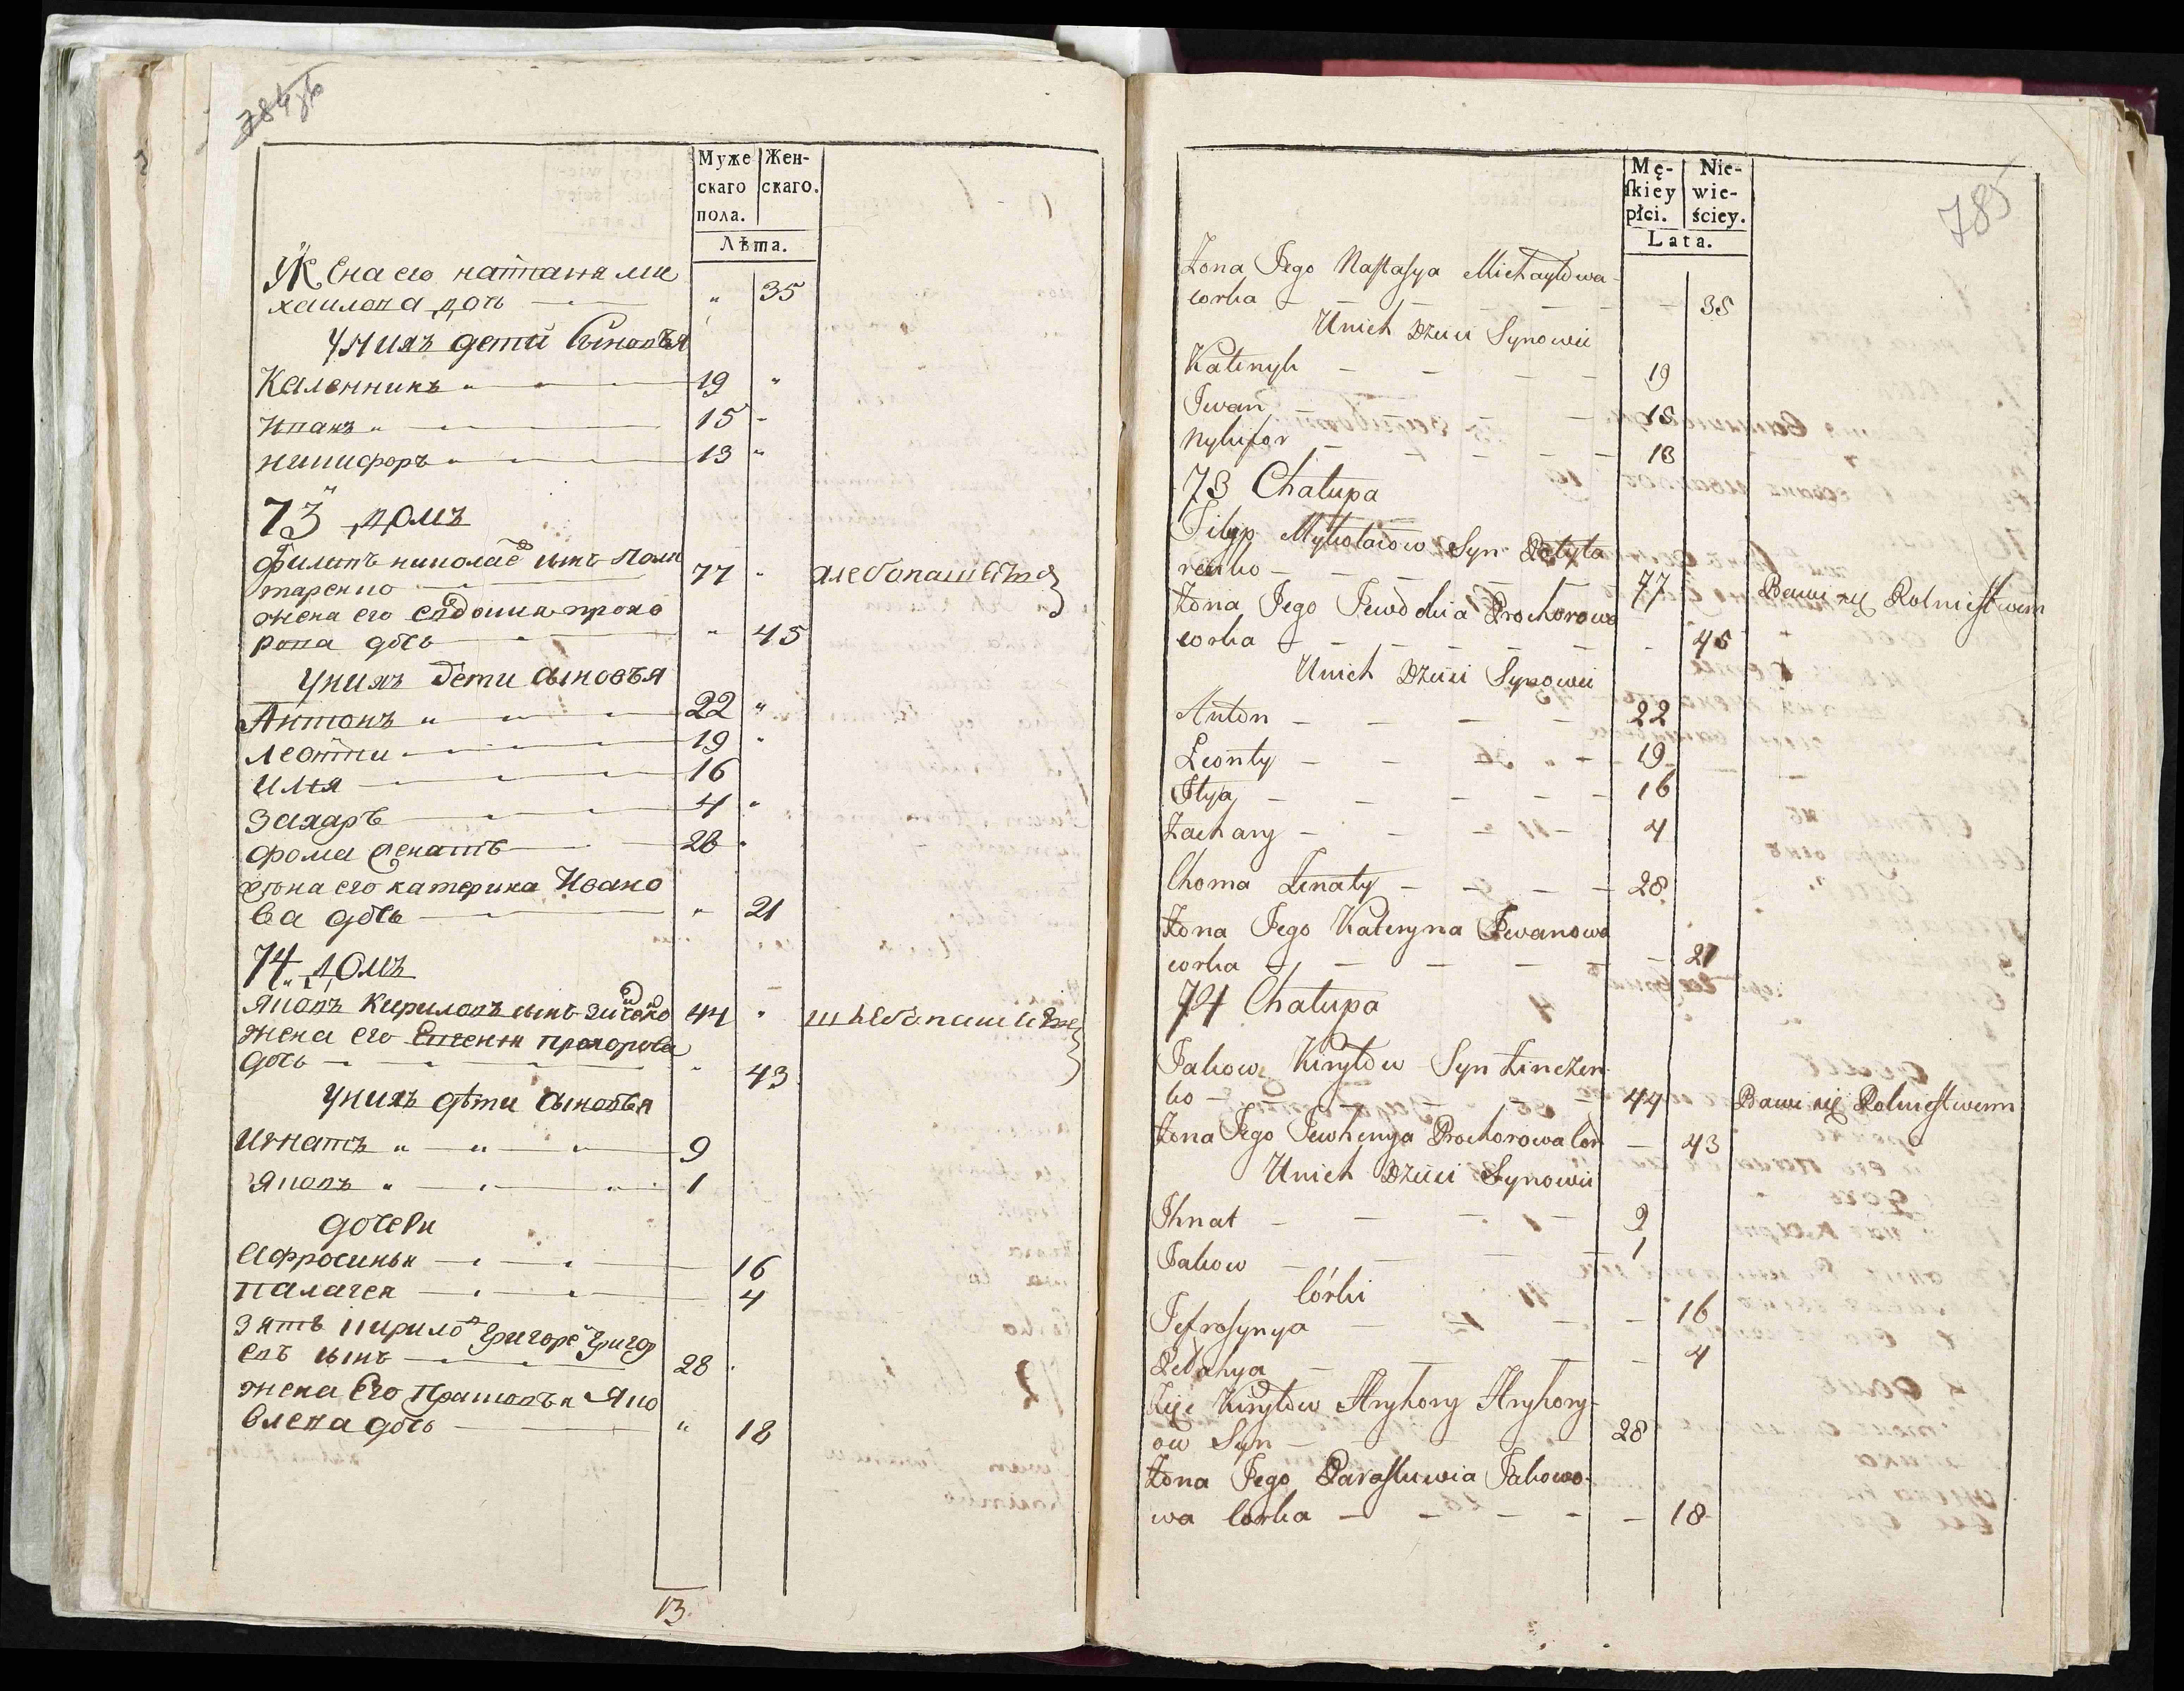 784об
Муже Жен-
скаго скаго.
пола.
Лѣта.
Жена его настася ми
хаилова дочь " 35
У них дети Сыновья
Каленникъ " 19 "
Иванъ " 15 -
никифоръ " 13 "
73 домъ
филипъ николаев сынъ Поли
таренко 77 " хлебопашество
жена его евдокия прохо
рова дочь " 45
У нихъ дети сыновья
Антонъ " 22 "
леонти 19 "
илья 16
захаръ 4 "
фома женатъ 28 "
жена его катерина Ивано
ва дочь " 21
74 домъ
Яковъ Кириловъ сынъ 44 "
жена его Евгения прохорова
дочь " 43
У нихъ дѣти сыновья
Игнатъ " 9
Яковъ " 1
дочери
Афросинья 16
палагея 4
Зять кирилов григоре григор
евъ сынъ 28 "
жена Его Прасковья Яко
влева дочь " 18
13
785
Mę- Nie-
ſkiey wie-
płci. ściey.
Lata.
Żona Jego Nastasya Michayłowa
corka - 35
Unich Dzieci Synowie
Kalenyk 19
Jwan 15
Nykifor 13
73 Chałupa
Filip Mykołaiow Syn Połyta
renko 77 Bawi się Rolnictwem
Żona Jego Jewdokia Prochorowa
corka - 45
Unich Dzieci Synowie
Anton 22
Leonty 19
Jlya 16
Zachary 4
Choma Żonaty 28
Żona Jego Kateryna Jwanowa
corka - 21
74 Chałupa
Jakow Kiryłow Syn Zinczen
ko 44 Bawi się Rolnictwem
Żona Jego Jewhenya Prochorowa Cor - 43
Unich Dzieci Synowie
Jhnat 9
Jakow 1
Córki
Jefrosynya - 16
Pełahya - 4
Zięć Kiryłow Hryhory Hryhory
ow Syn 28
Żona Jego Paraskiewia Jakowo
wa Corka - 18